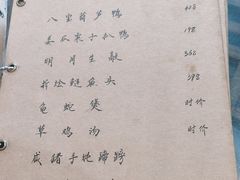 八宝葫芦鸭 408
姜瓜栗子扒鸭 198
明月生敲 368
拆烩鲢鱼头 398
龟蛇煲 时价
草鸡汤 时价
咸猪手炖蹄髈